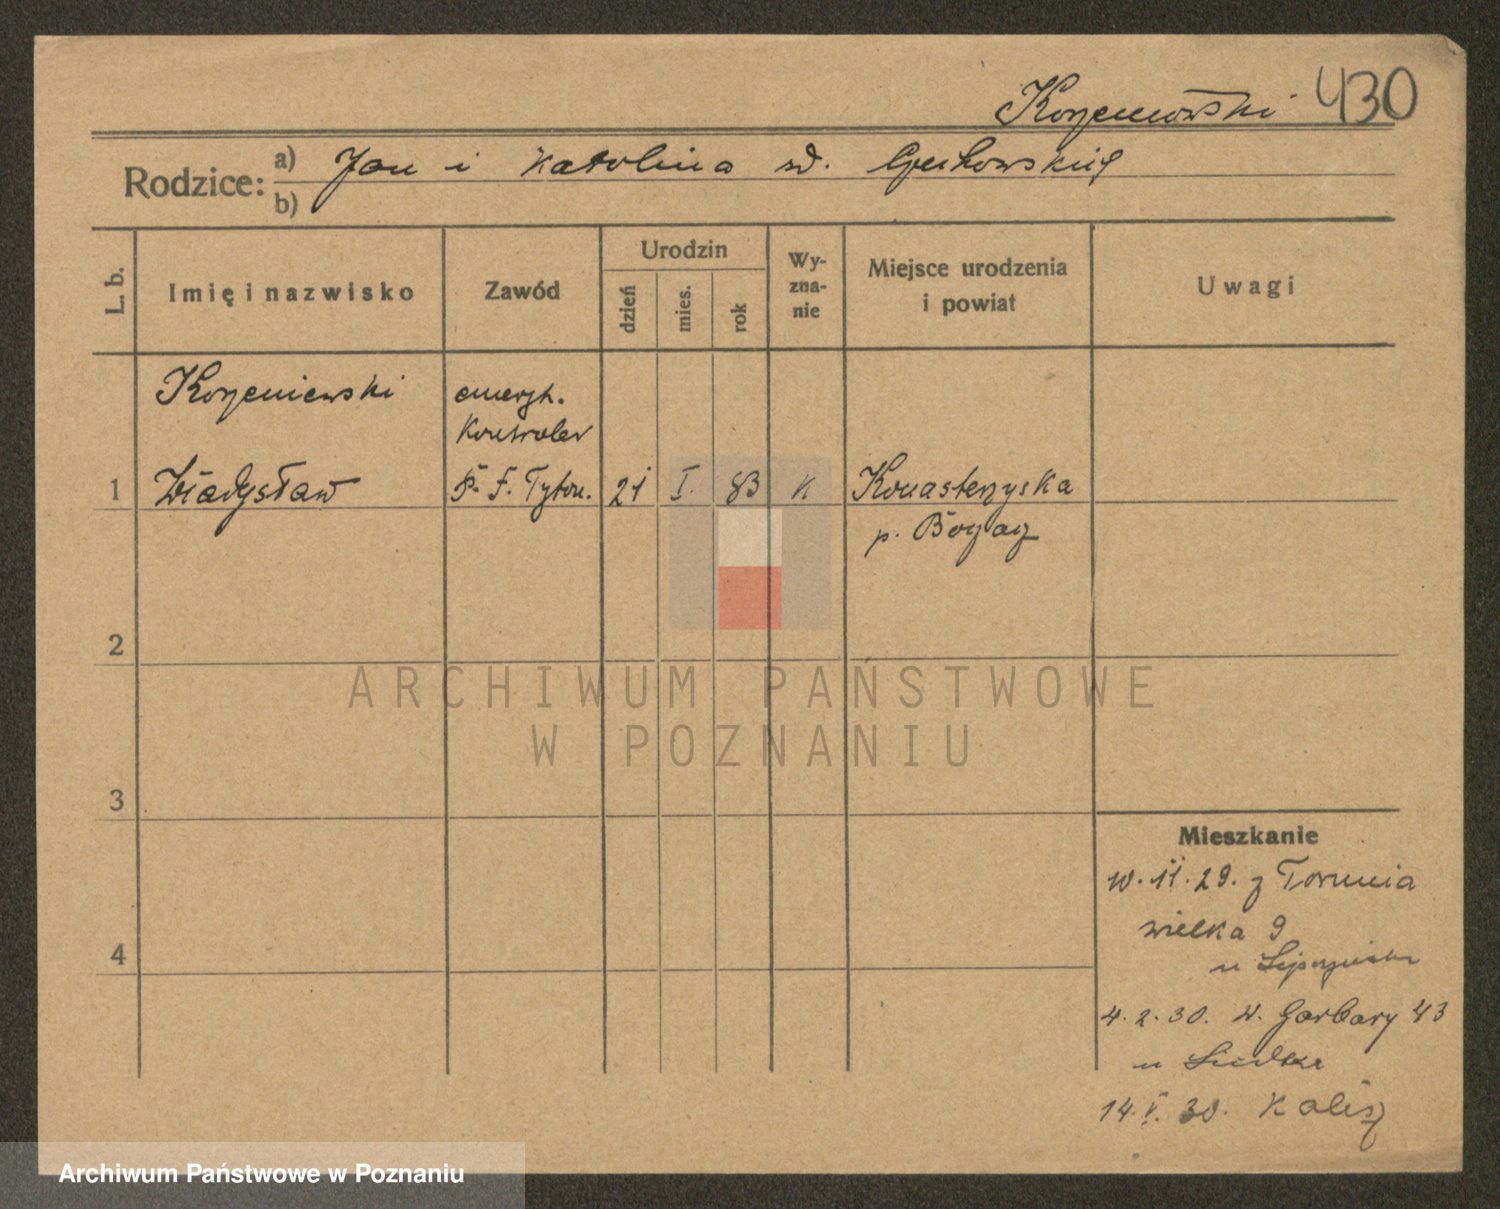 Korzeniowski 430
Rodzice: a) Jan i Karolina zd.
b)
L. b.
Imię i nazwisko
Zawód
Urodzin
dzień
mies.
rok
Wy-
zna-
nie
Miejsce urodzenia
i powiat
Uwagi
Korzeniewski emeryt.
Kontroler
1 Władysław P. F. Tyton. 21 I. 83 K Monasterzyska
p.
2
3
4
ARCHIWUM PAŃSTWOWE
W POZNANIU
Mieszkanie
11.29. z Torunia
wielka 9
u
4.2.30. W. Garbary 43
u
14.V.30. Kalisz
Archiwum Państwowe w Poznaniu